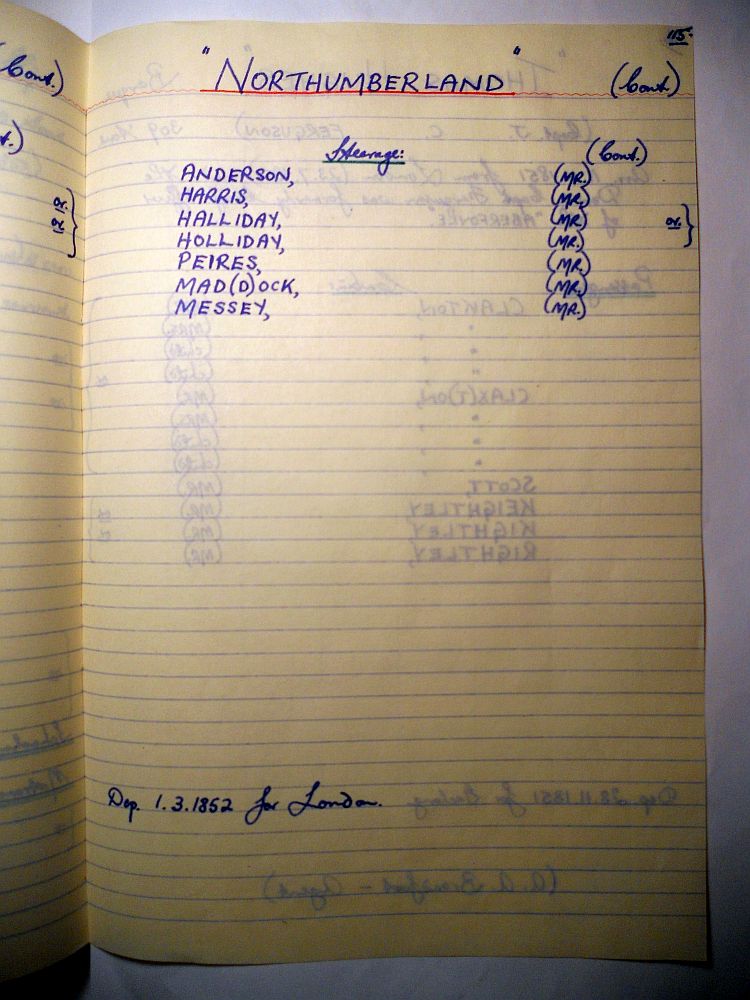 115.
"NORTHUMBERLAND" (Cont.)
Steerage: (Cont.)
ANDERSON, (MR.)
HARRIS, (MR.)
HALLIDAY, (MR.) or
HOLLIDAY, (MR.)
PEIRES, (MR.)
MAD(D)OCK, (MR.)
MESSEY, (MR.)
Dep. 1.3.1852 for London.
(Cont.)
or
or